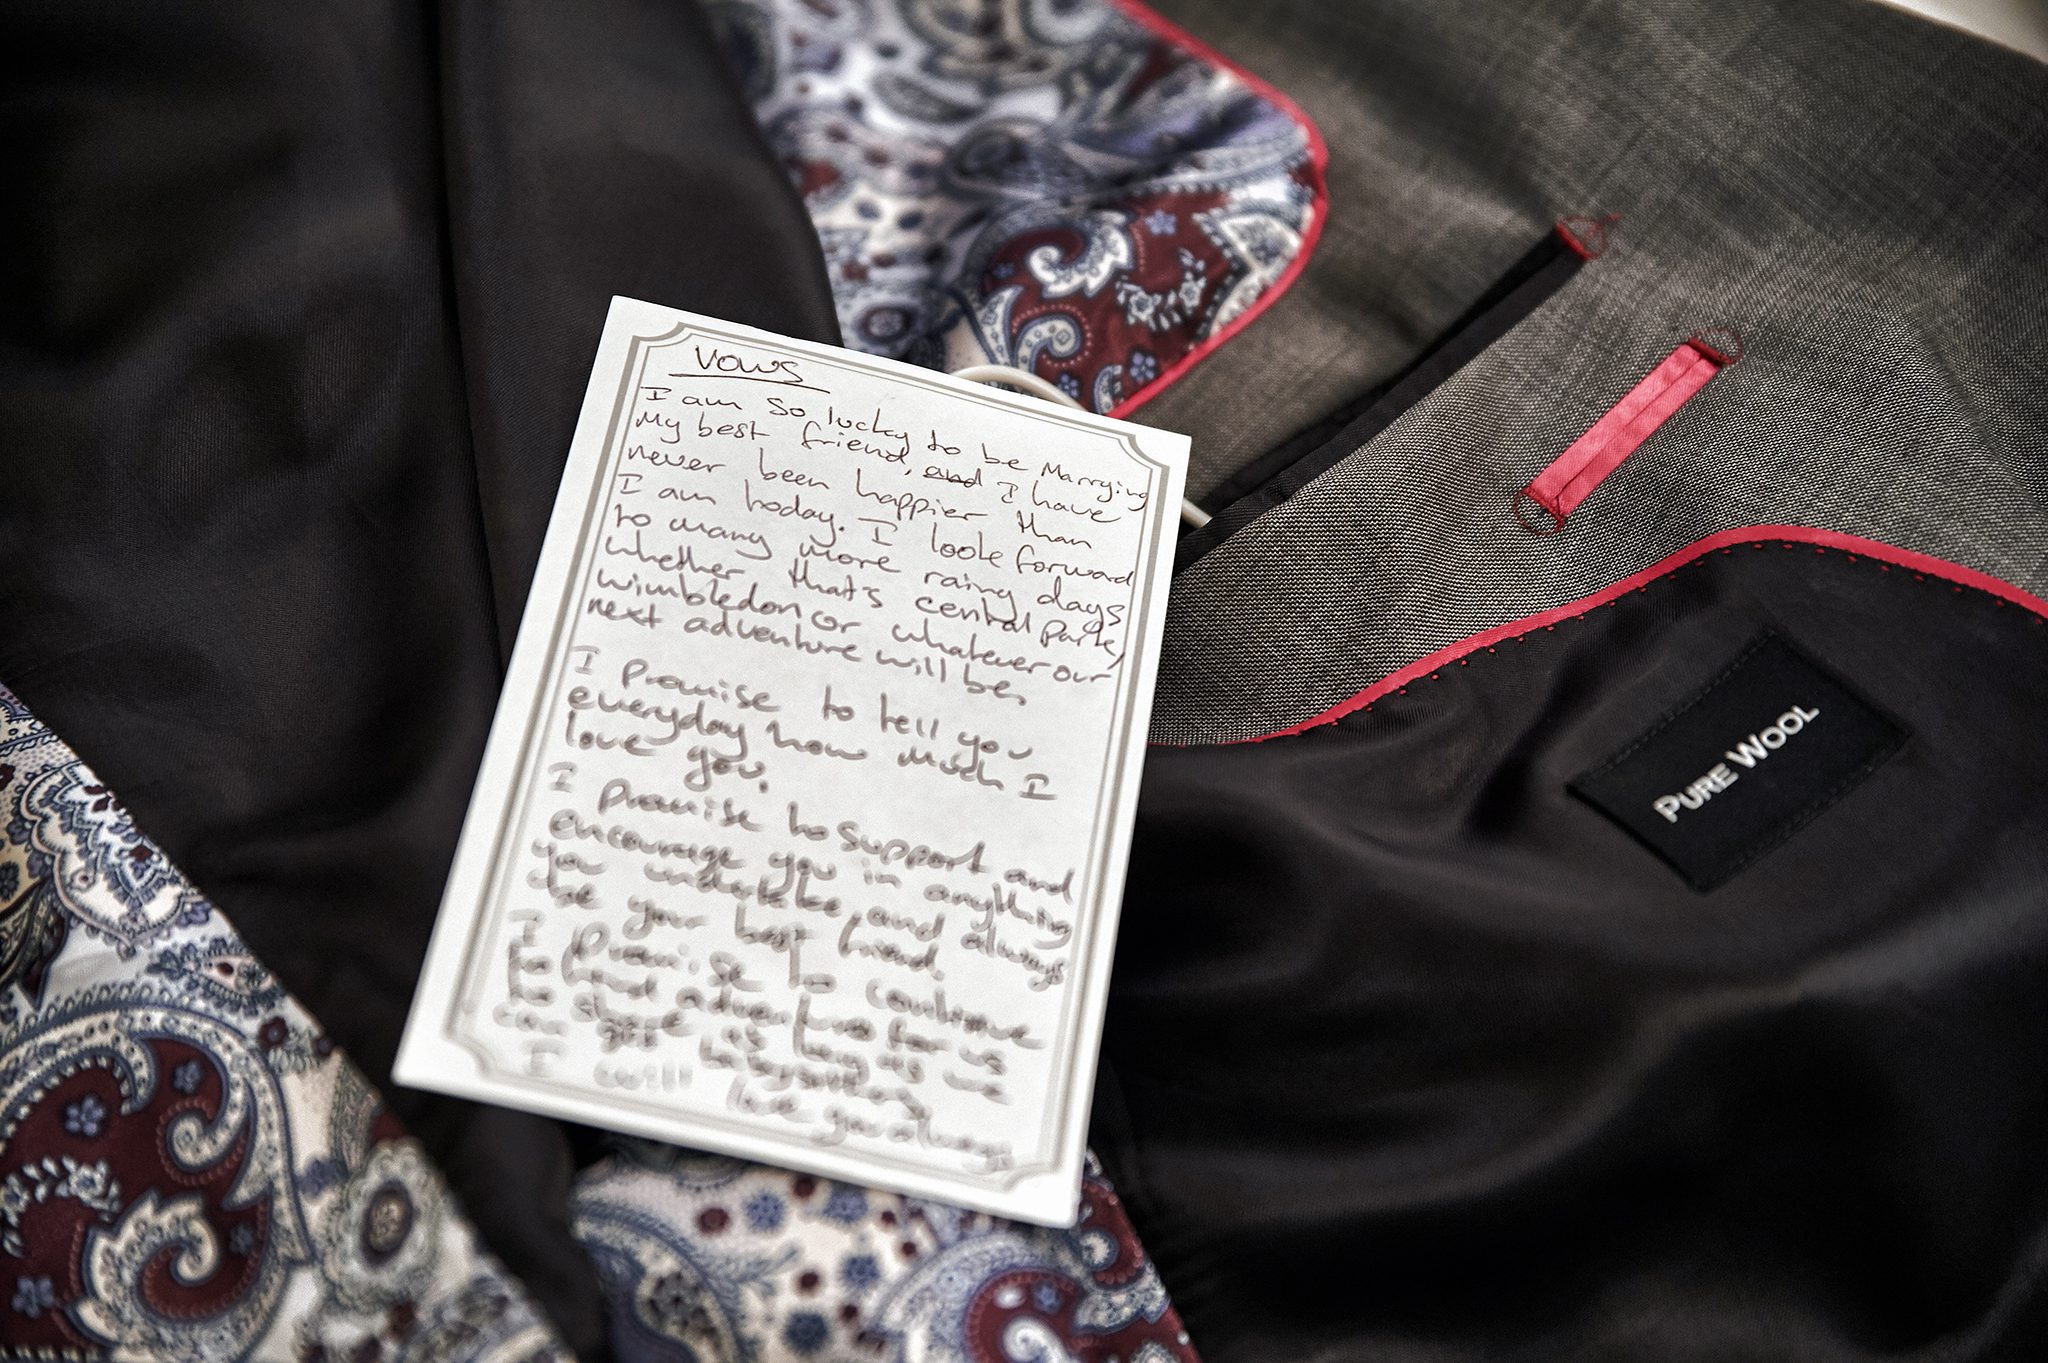 VOWS
I am so lucky to be Marrying
My best friend, and I have
never been happier than
I am today. I look forward
to many more rainy days
whether that's central park,
wimbledon or whatever our
next adventure will be.
I promise to tell you
everyday how much I
love you.
I promise to support and
encourage you in anything
you undertake, and always
be your best friend.
I promise to continue
to find adventures for us
to share as long as we
can
I will love you always
PURE WOOL